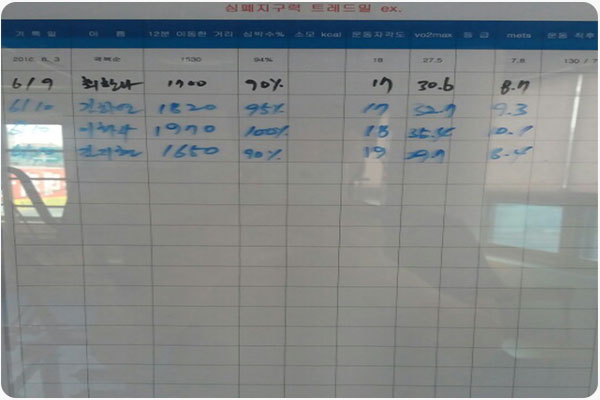 심폐지구력 트레드밀 ex.
기 록 일 이 름 12분 이동한 거리 심박수% 소모 kcal 운동자각도 vo2max 등 급 mets 운동 직후
2012. 6. 3 1530 94% 19 27.5 7.8 130 / 7
6/9 1700 90% 17 30.6 8.7
6/10 1820 95% 17 32.7 9.3
1970 100% 18
1650 90% 19 8.4